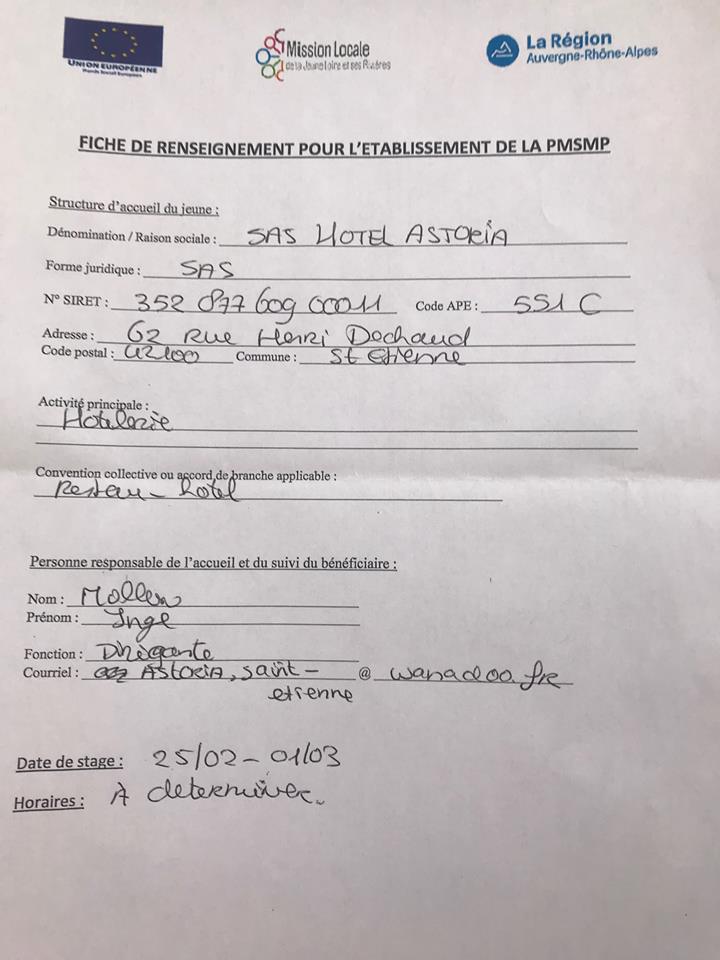 UNION EUROPÉENNE
Fonds Social Européen
Mission Locale
de la Jeune Loire et ses Rivières
La Région
Auvergne-Rhône-Alpes
FICHE DE RENSEIGNEMENT POUR L'ETABLISSEMENT DE LA PMSMP
Structure d'accueil du jeune :
Dénomination / Raison sociale : SAS HOTEL ASTORIA
Forme juridique : SAS
N° SIRET : 352 877 609 00011 Code APE : 551 C
Adresse : 62 Rue Henri Dechaud
Code postal : 42100 Commune : St Etienne
Activité principale :
Hotelerie
Convention collective ou accord de branche applicable :
Restau - hotel
Personne responsable de l'accueil et du suivi du bénéficiaire :
Nom :
Prénom : Inge
Fonction : Dirigante
Courriel : ASTORIA.saint- @ wanadoo.fr
etienne
Date de stage : 25/02 - 01/03
Horaires : À determiner.